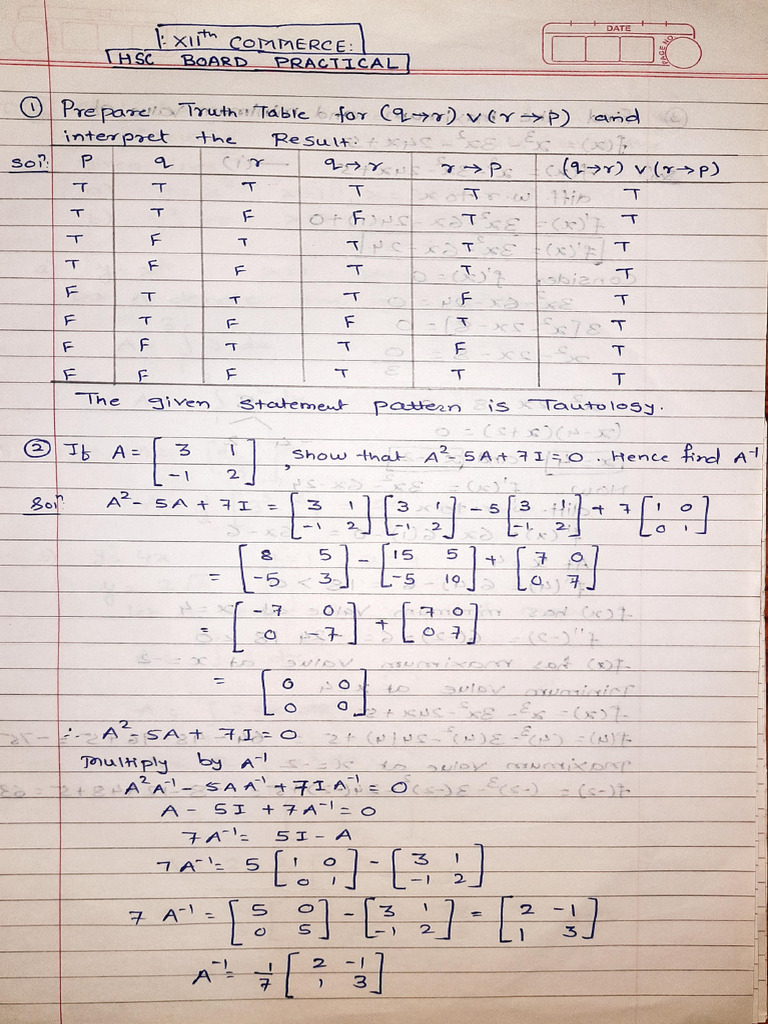 : XIIth COMMERCE:
HSC BOARD PRACTICAL
DATE
PAGE NO
① Prepare Truth Table for (q→r) ∨ (r→p) and
interpret the Result.
Soln: P q r q→r r→p (q→r) ∨ (r→p)
T T T T T T
T T F F T T
T F T T T T
T F F T T T
F T T T F T
F T F F T T
F F T T F T
F F F T T T
The given statement pattern is Tautology.
② If A = [3 1; -1 2], show that A² - 5A + 7I = 0. Hence find A⁻¹
Soln: A² - 5A + 7I = [3 1; -1 2] [3 1; -1 2] - 5 [3 1; -1 2] + 7 [1 0; 0 1]
= [8 5; -5 3] - [15 5; -5 10] + [7 0; 0 7]
= [-7 0; 0 -7] + [7 0; 0 7]
= [0 0; 0 0]
∴ A² - 5A + 7I = 0
Multiply by A⁻¹
A²A⁻¹ - 5AA⁻¹ + 7IA⁻¹ = 0
A - 5I + 7A⁻¹ = 0
7A⁻¹ = 5I - A
7A⁻¹ = 5 [1 0; 0 1] - [3 1; -1 2]
7 A⁻¹ = [5 0; 0 5] - [3 1; -1 2] = [2 -1; 1 3]
A⁻¹ = 1/7 [2 -1; 1 3]